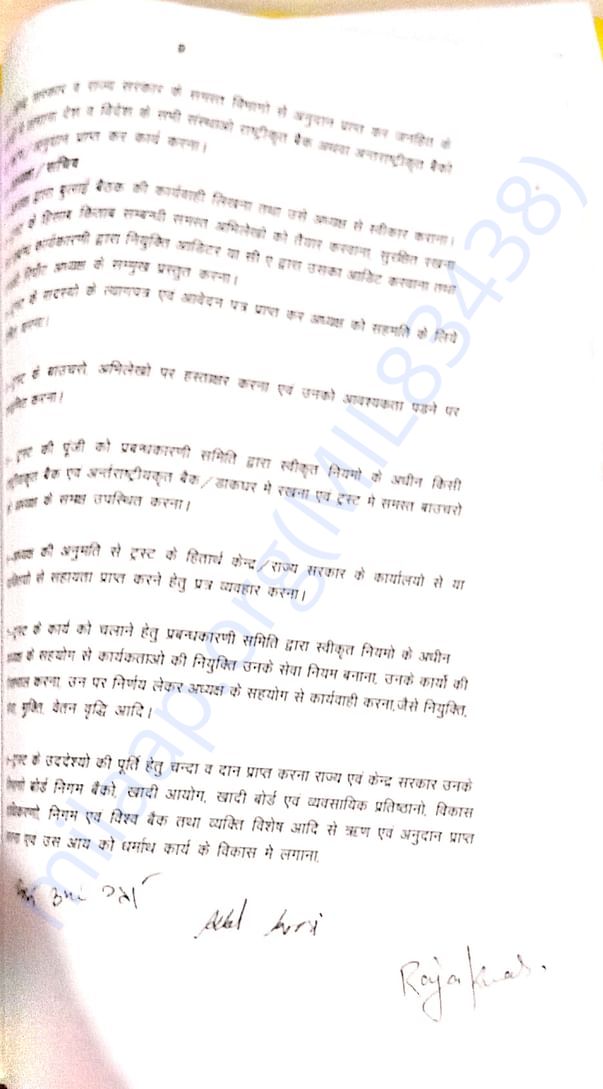 सरकार व राज्य सरकार के समस्त विभागो से अनुदान प्राप्त कर जनहित के
लगाना देश व विदेश के सभी संस्थाओ राष्ट्रीकृत बैक अथवा अन्तराष्ट्रीकृत बैको
अनुदान प्राप्त कर कार्य करना।
सचिव
द्वारा बुलाई बैठक की कार्यवाही लिखना तथा उसे अध्यक्ष से स्वीकार कराना।
के हिसाब किताब सम्बन्धी समस्त अभिलेखो को तैयार करवाना, सुरक्षित रखना
कार्यकारणी द्वारा नियुक्ति आडिटर या सी ए द्वारा उसका आडिट करवाना तथा
रिपोट अध्यक्ष के सम्मुख प्रस्तुत करना।
के सदस्यो के त्यागपत्र एवं आवेदन पत्र प्राप्त कर अध्यक्ष को सहमति के लिये
ट्रस्ट के बाउचरो, अभिलेखो पर हस्ताक्षर करना एवं उनको आवश्यकता पडने पर
करना।
ट्रस्ट की पूंजी को प्रबन्धकारणी समिति द्वारा स्वीकृत नियमो के अधीन किसी
बैक एवं अर्न्तराष्ट्रीयकृत बैक/डाकघर मे रखना एवं ट्रस्ट मे समस्त बाउचरो
अध्यक्ष के समक्ष उपस्थित करना।
की अनुमति से ट्रस्ट के हितार्थ केन्द्र/राज्य सरकार के कार्यालयो से या
से सहायता प्राप्त करने हेतु प्रत्र व्यवहार करना।
ट्रस्ट के कार्य को चलाने हेतु प्रबन्धकारणी समिति द्वारा स्वीकृत नियमो के अधीन
के सहयोग से कार्यकताओ की नियुक्ति उनके सेवा नियम बनाना, उनके कार्यो की
करना, उन पर निर्णय लेकर अध्यक्ष के सहयोग से कार्यवाही करना,जैसे नियुक्ति,
मुक्ति, वेतन वृद्धि आदि।
ट्रस्ट के उददेश्यो की पूर्ति हेतु चन्दा व दान प्राप्त करना राज्य एवं केन्द्र सरकार उनके
बोर्ड निगम बैको, खादी आयोग, खादी बोर्ड एवं व्यवसायिक प्रतिष्ठानो, विकास
निगम एवं विश्व बैक तथा व्यक्ति विशेष आदि से ऋण एवं अनुदान प्राप्त
एवं उस आय को धर्माथ कार्य के विकास मे लगाना,
milaap.org(MIL83438)